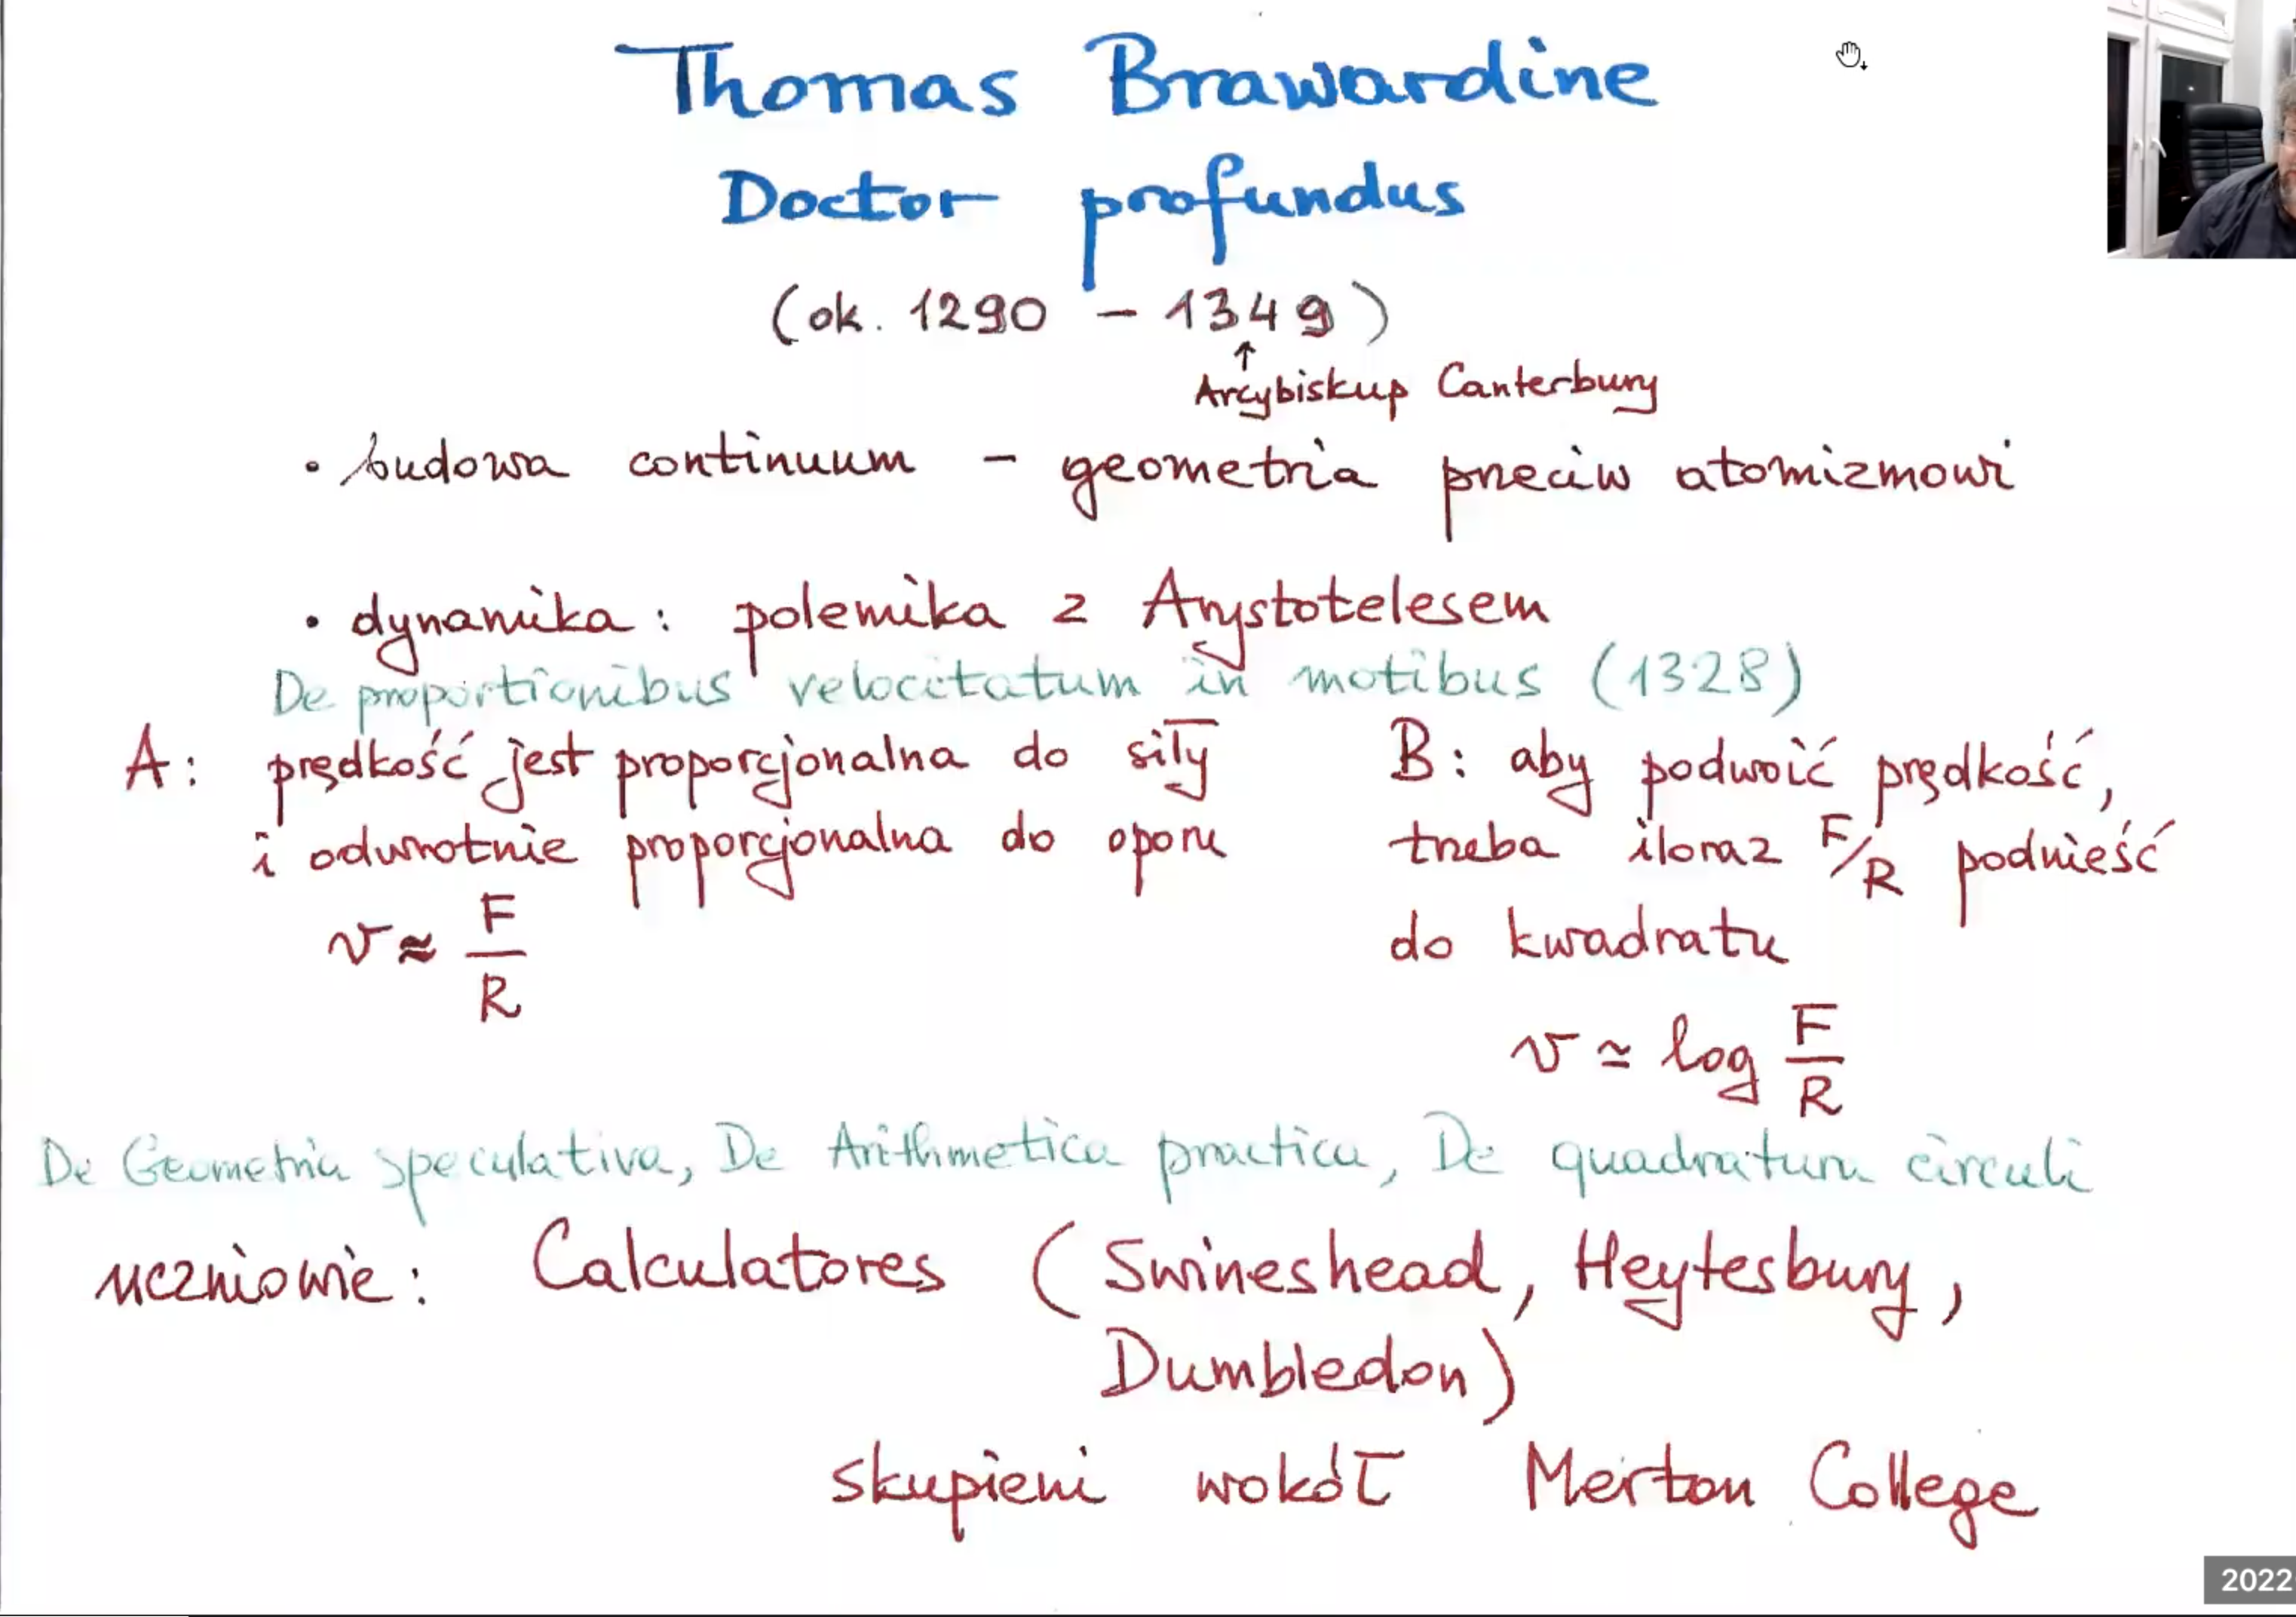 Thomas Brawardine
Doctor profundus
(ok. 1290 – 1349)
↑
Arcybiskup Canterbury
• budowa continuum – geometria przeciw atomizmowi
• dynamika: polemika z Arystotelesem
De proportionibus velocitatum in motibus (1328)
A: prędkość jest proporcjonalna do siły
i odwrotnie proporcjonalna do oporu
v ≈ F/R
B: aby podwoić prędkość,
trzeba iloraz F/R podnieść
do kwadratu
v ≃ log F/R
De Geometria speculativa, De Arithmetica practica, De quadratura circuli
uczniowie: Calculatores (Swineshead, Heytesbury,
Dumbledon)
skupieni wokół Merton College
2022